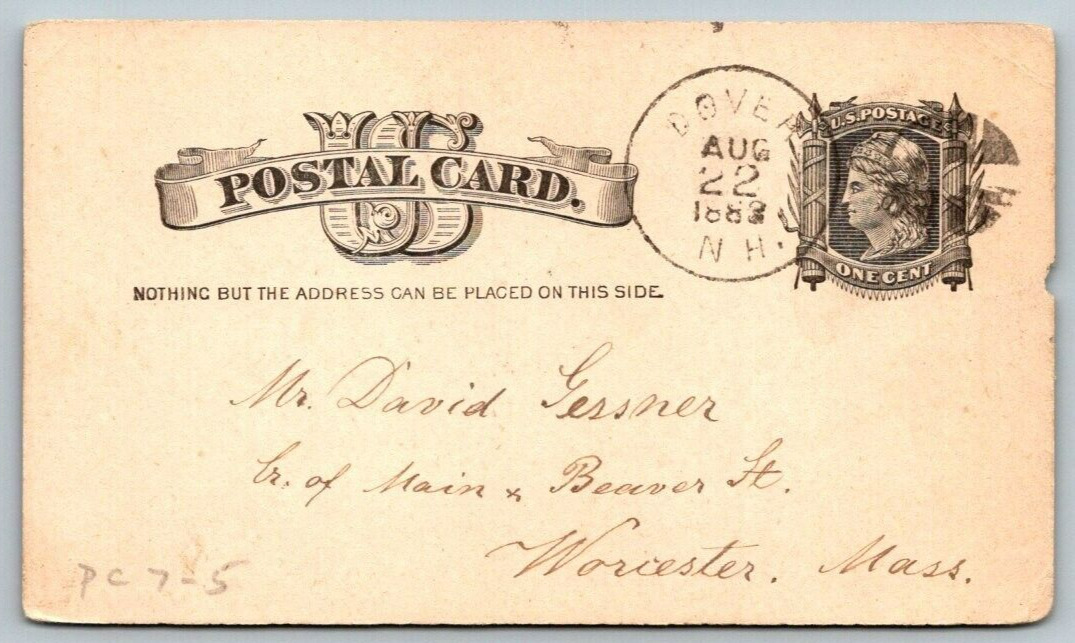 US
POSTAL CARD.
NOTHING BUT THE ADDRESS CAN BE PLACED ON THIS SIDE.
DOVER
AUG
22
1882
N H.
U.S. POSTAGE
ONE CENT
Mr. David Gessner
Cr. of Main & Beaver St.
Worcester. Mass.
PC 7-5